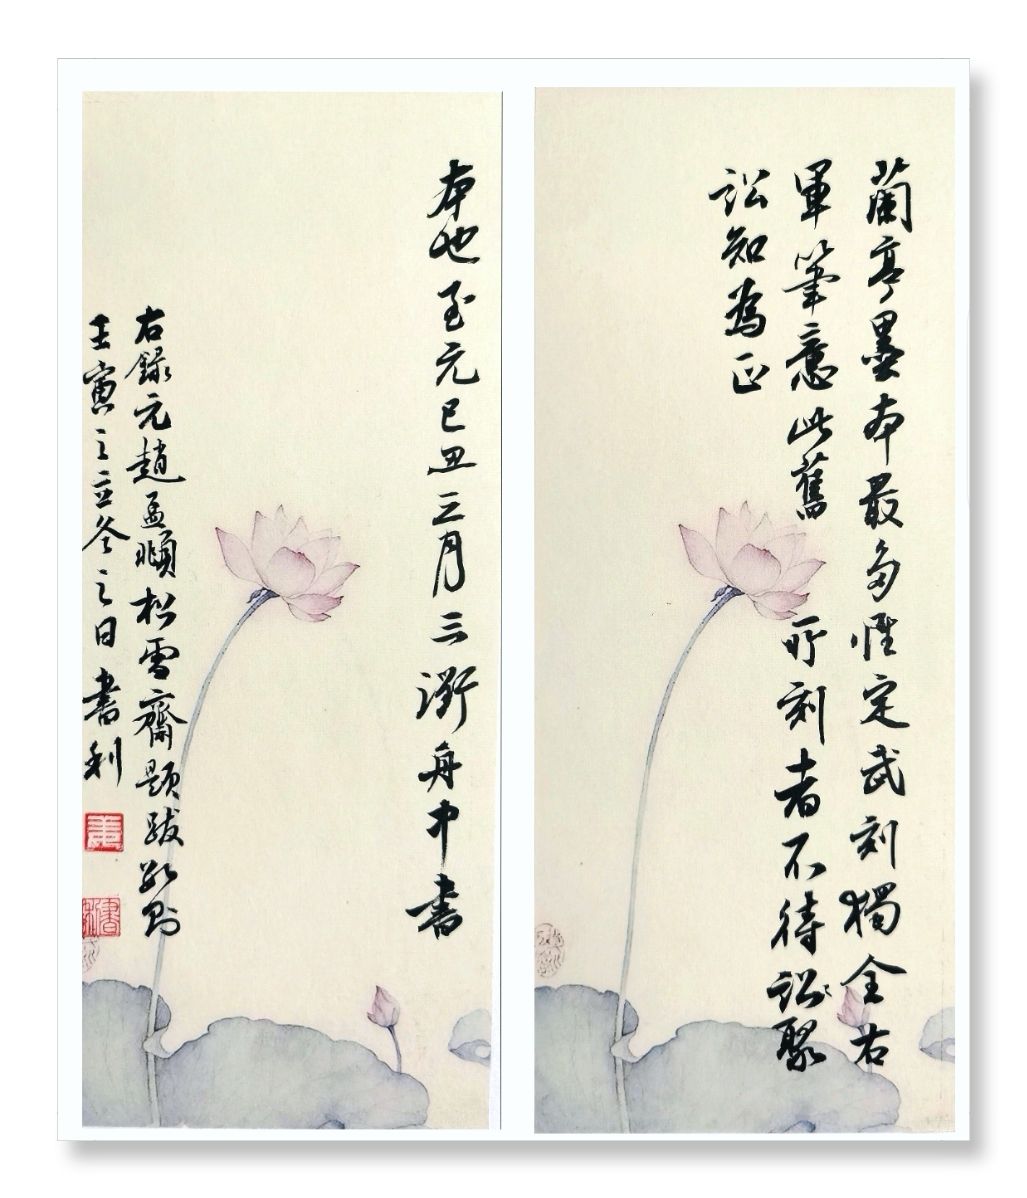 蘭亭墨本最多惟定武刻獨全右
軍筆意此舊所刻者不待訟聚
訟知為正
本也至元己丑三月三衢舟中書
右錄元趙孟頫松雪齋題跋數則
壬寅之立冬之日書利